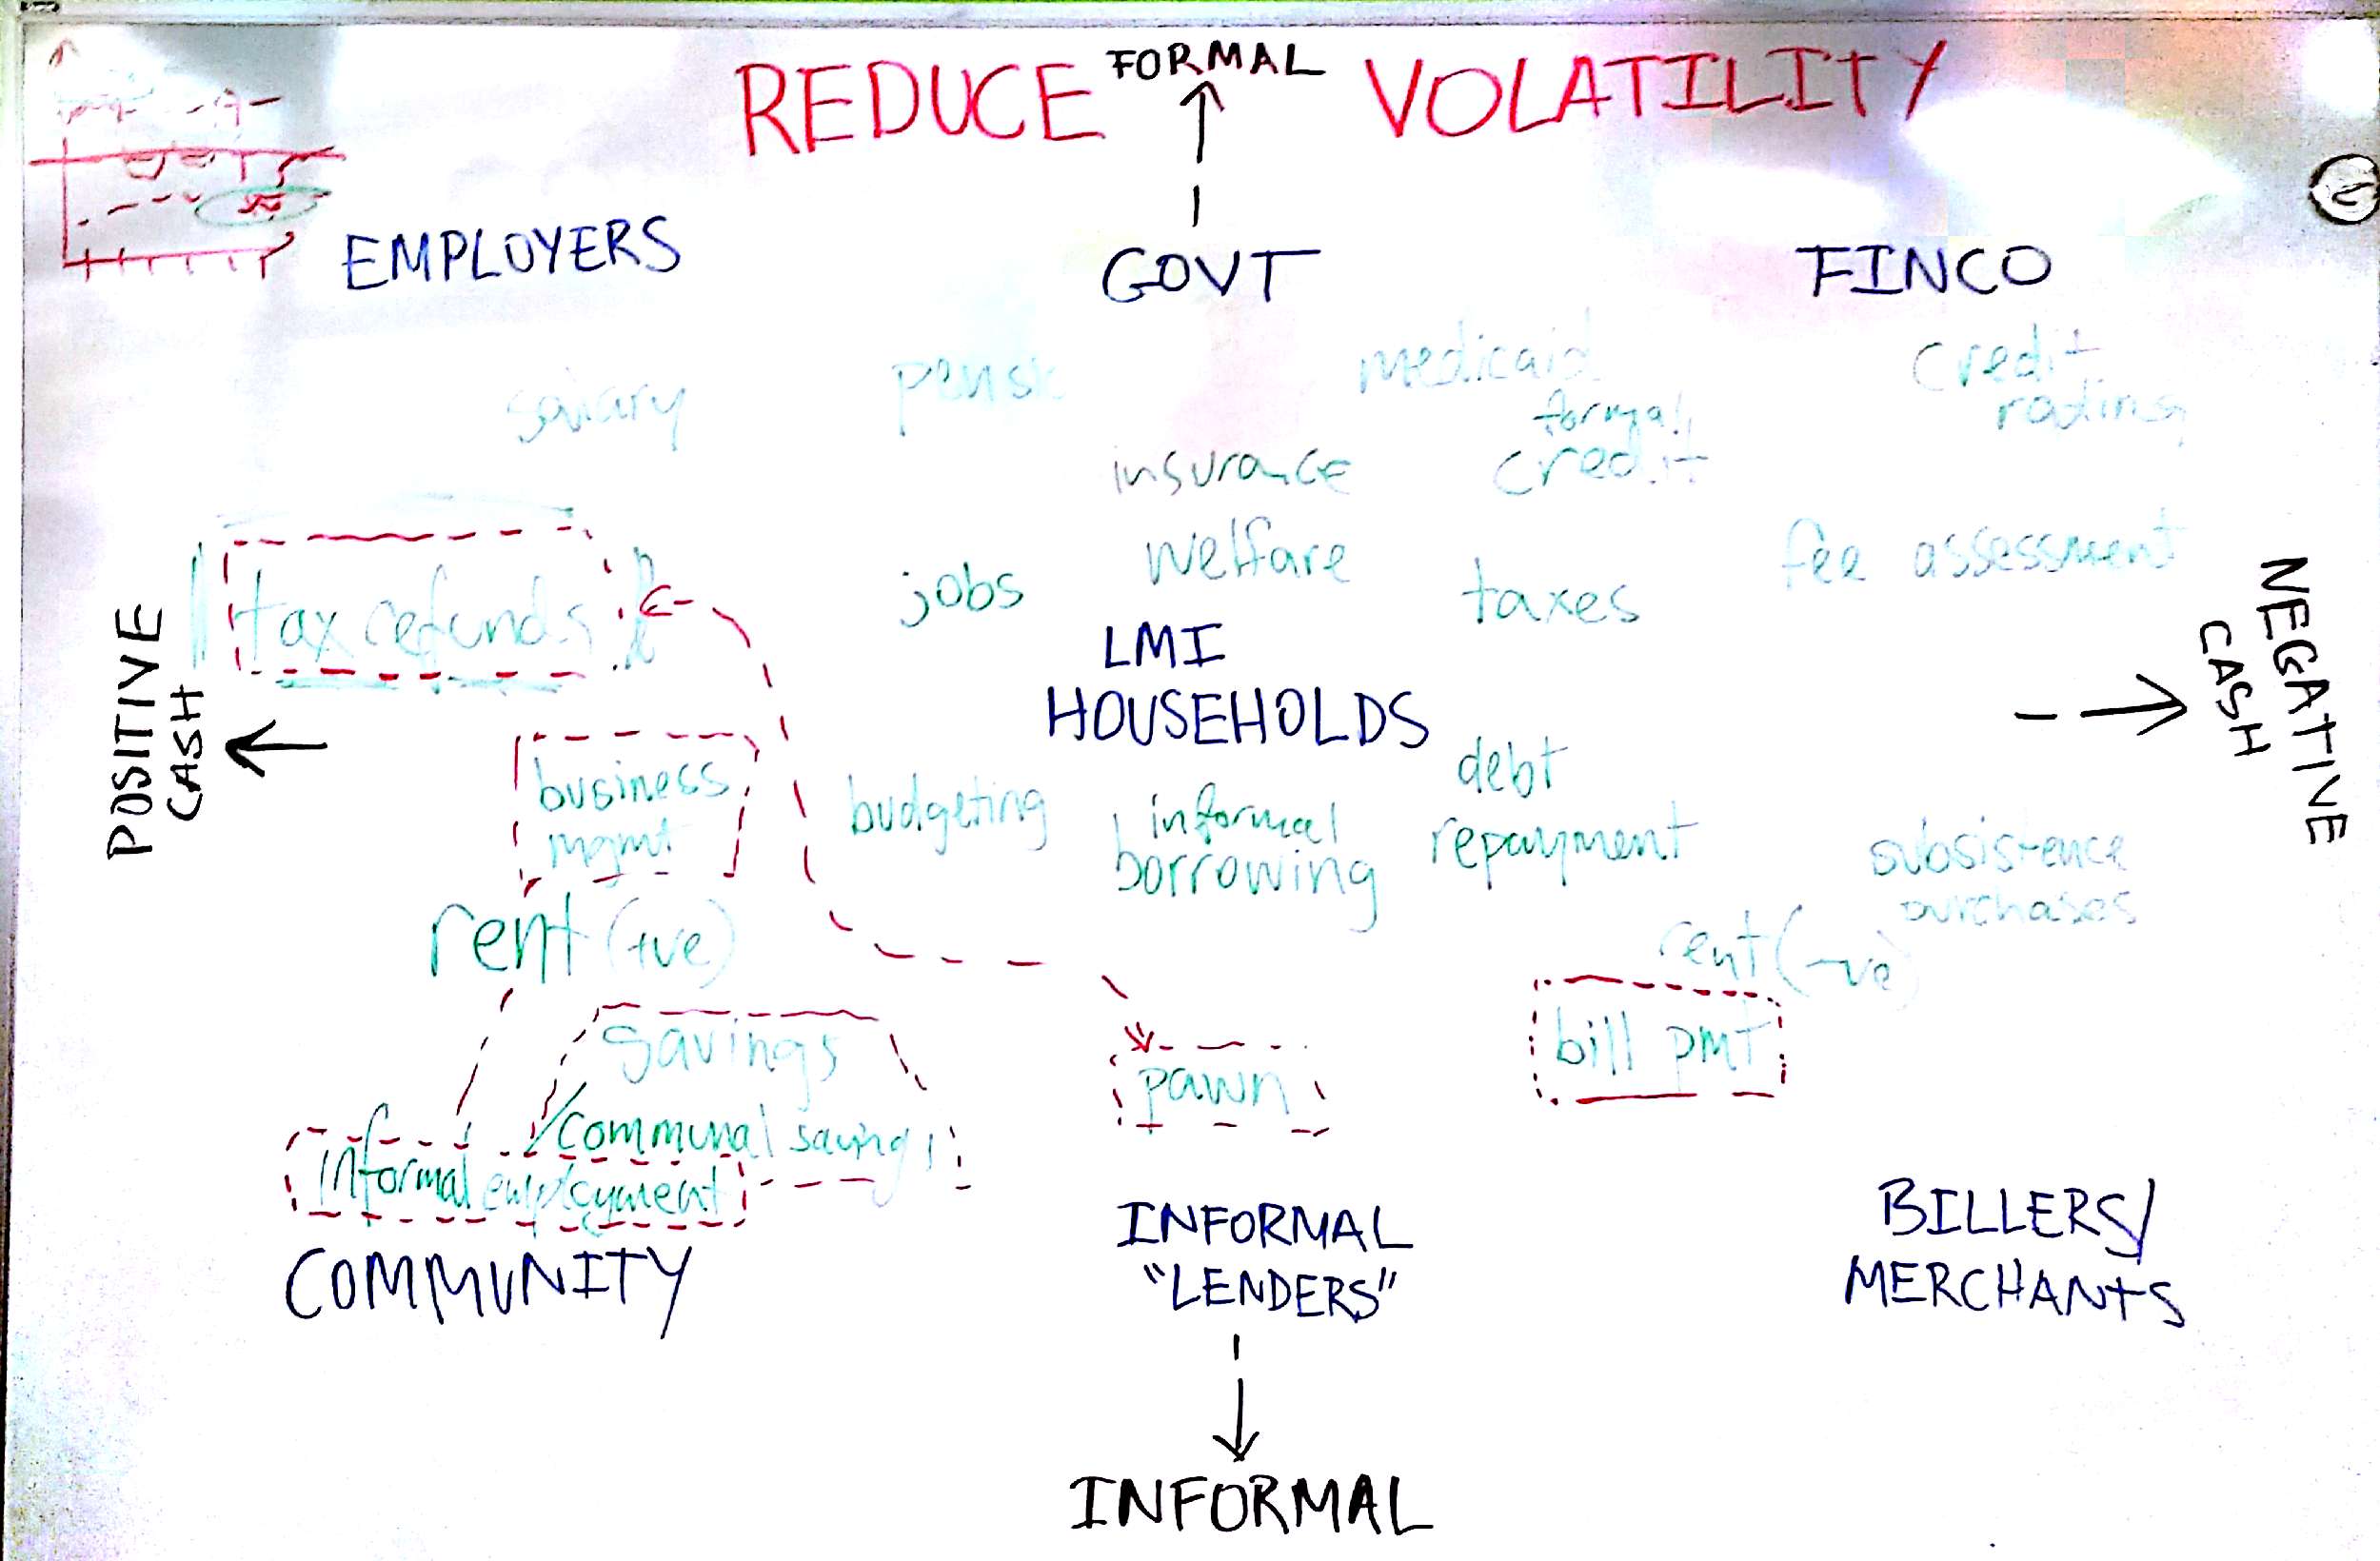 FORMAL
REDUCE VOLATILITY
EMPLOYERS
GOVT
FINCO
salary
medicaid
credit
rating
formal
credit
insurance
welfare
jobs
taxes
fee assessment
tax refunds
LMI
HOUSEHOLDS
POSITIVE
CASH
NEGATIVE
CASH
business
mgmt
budgeting
informal
borrowing
debt
repayment
subsistence
purchases
rent (+ve)
rent (-ve)
savings
/communal savings
pawn
bill pmt
informal employment
COMMUNITY
INFORMAL
"LENDERS"
BILLERS/
MERCHANTS
INFORMAL